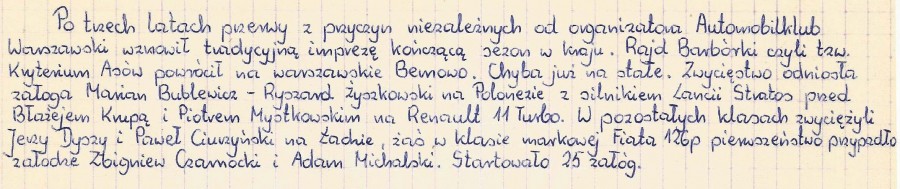 Po trzech latach przerwy z przyczyn niezależnych od organizatora Automobilklub
Warszawski wznowił tradycyjną imprezę kończącą sezon w kraju. Rajd Barbórki czyli tzw.
Kryterium Asów powrócił na warszawskie Bemowo. Chyba już na stałe. Zwycięstwo odniosła
załoga Marian Bublewicz - Ryszard Żyszkowski na Polonezie z silnikiem Lancii Stratos przed
Błażejem Krupą i Piotrem Mystkowskim na Renault 11 Turbo. W pozostałych klasach zwyciężyli
Jerzy Dyszy i Paweł Ciurzyński na Ładnie, zaś w klasie markowej Fiata 126p pierwszeństwo przypadło
załodze Zbigniew Czarnocki i Adam Michalski. Startowało 25 załóg.